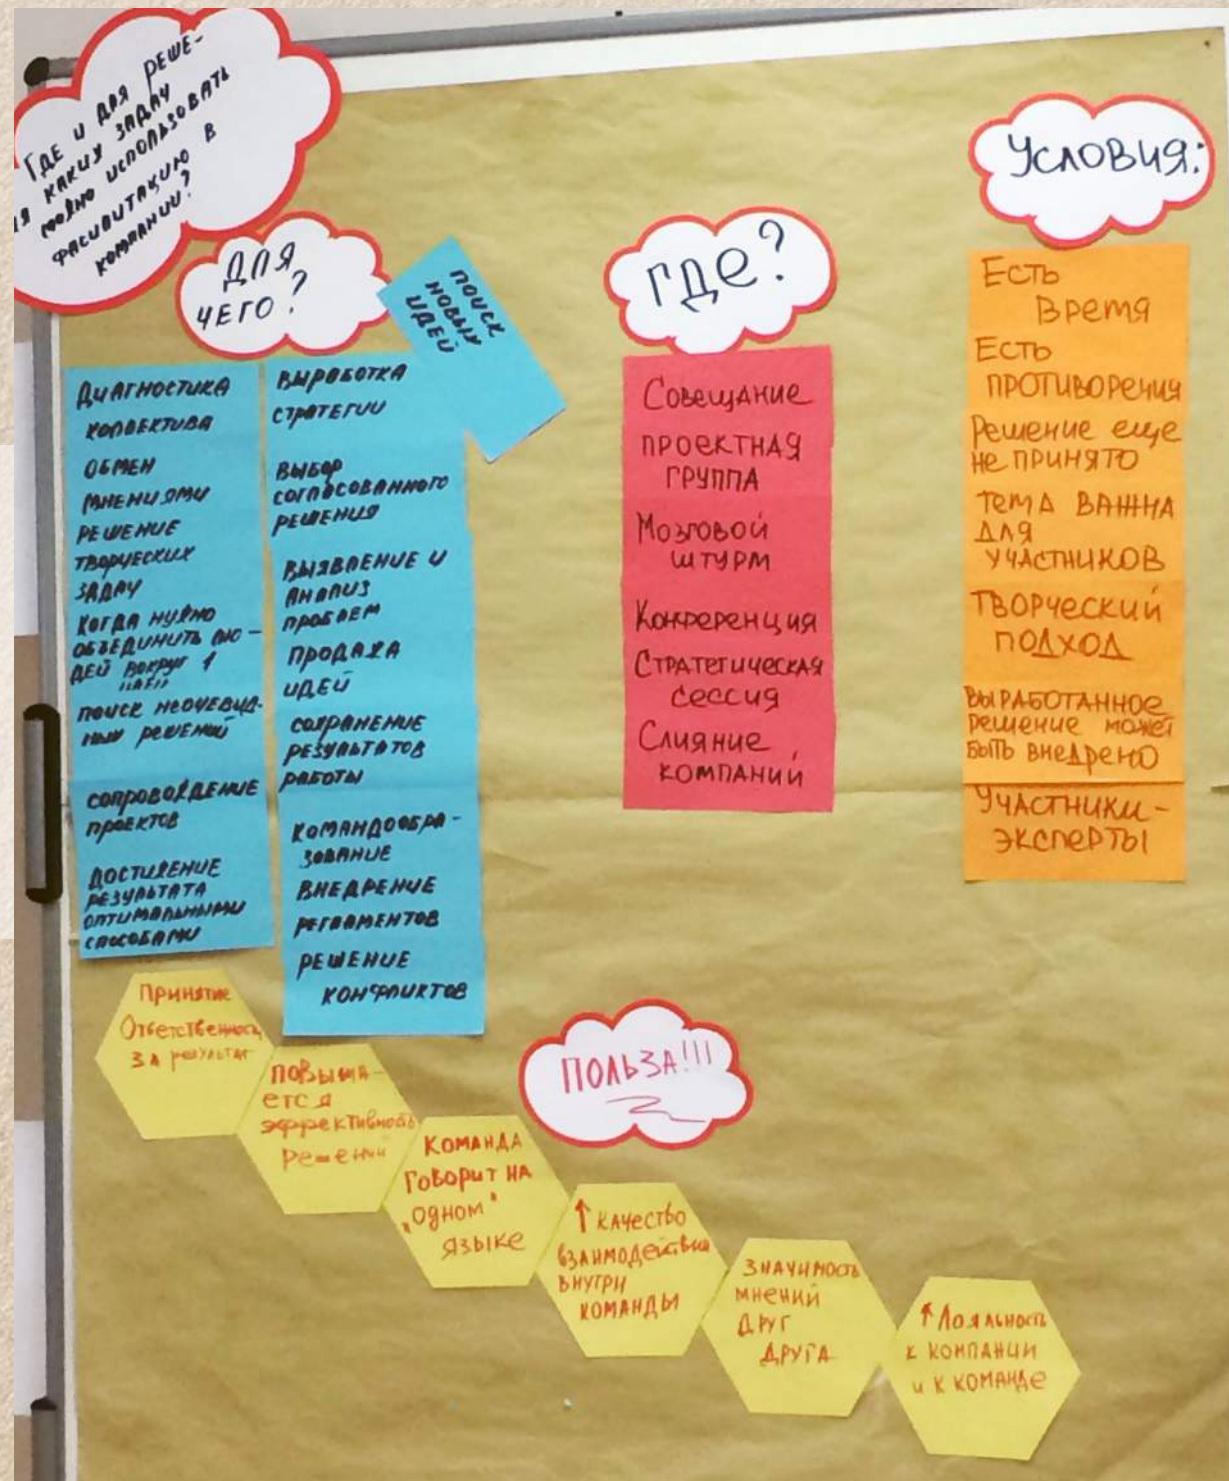 Где и для реше-
ния каких задач
можно использовать
фасилитацию в
компании?
Для
чего?
поиск
новых
идей
Диагностика
коллектива
обмен
мнениями
решение
творческих
задач
когда нужно
объединить лю-
дей вокруг 1
идеи
поиск неочевид-
ных решений
сопровождение
проектов
достижение
результата
оптимальными
способами
выработка
стратегии
выбор
согласованного
решения
выявление и
анализ
проблем
продажа
идей
сохранение
результатов
работы
командообра-
зование
внедрение
регламентов
решение
конфликтов
Где?
Совещание
проектная
группа
Мозговой
штурм
Конференция
Стратегическая
сессия
Слияние
компаний
Условия:
Есть
время
Есть
противоречия
Решение еще
не принято
тема важна
для
участников
Творческий
подход
выработанное
решение может
быть внедрено
Участники-
эксперты
Польза!!!
Принятие
Ответственности
за результат
повыша-
ется
эффективность
решений
Команда
говорит на
"одном"
языке
↑ качество
взаимодействия
внутри
команды
значимость
мнений
друг
друга
↑ Лояльность
к компании
и к команде